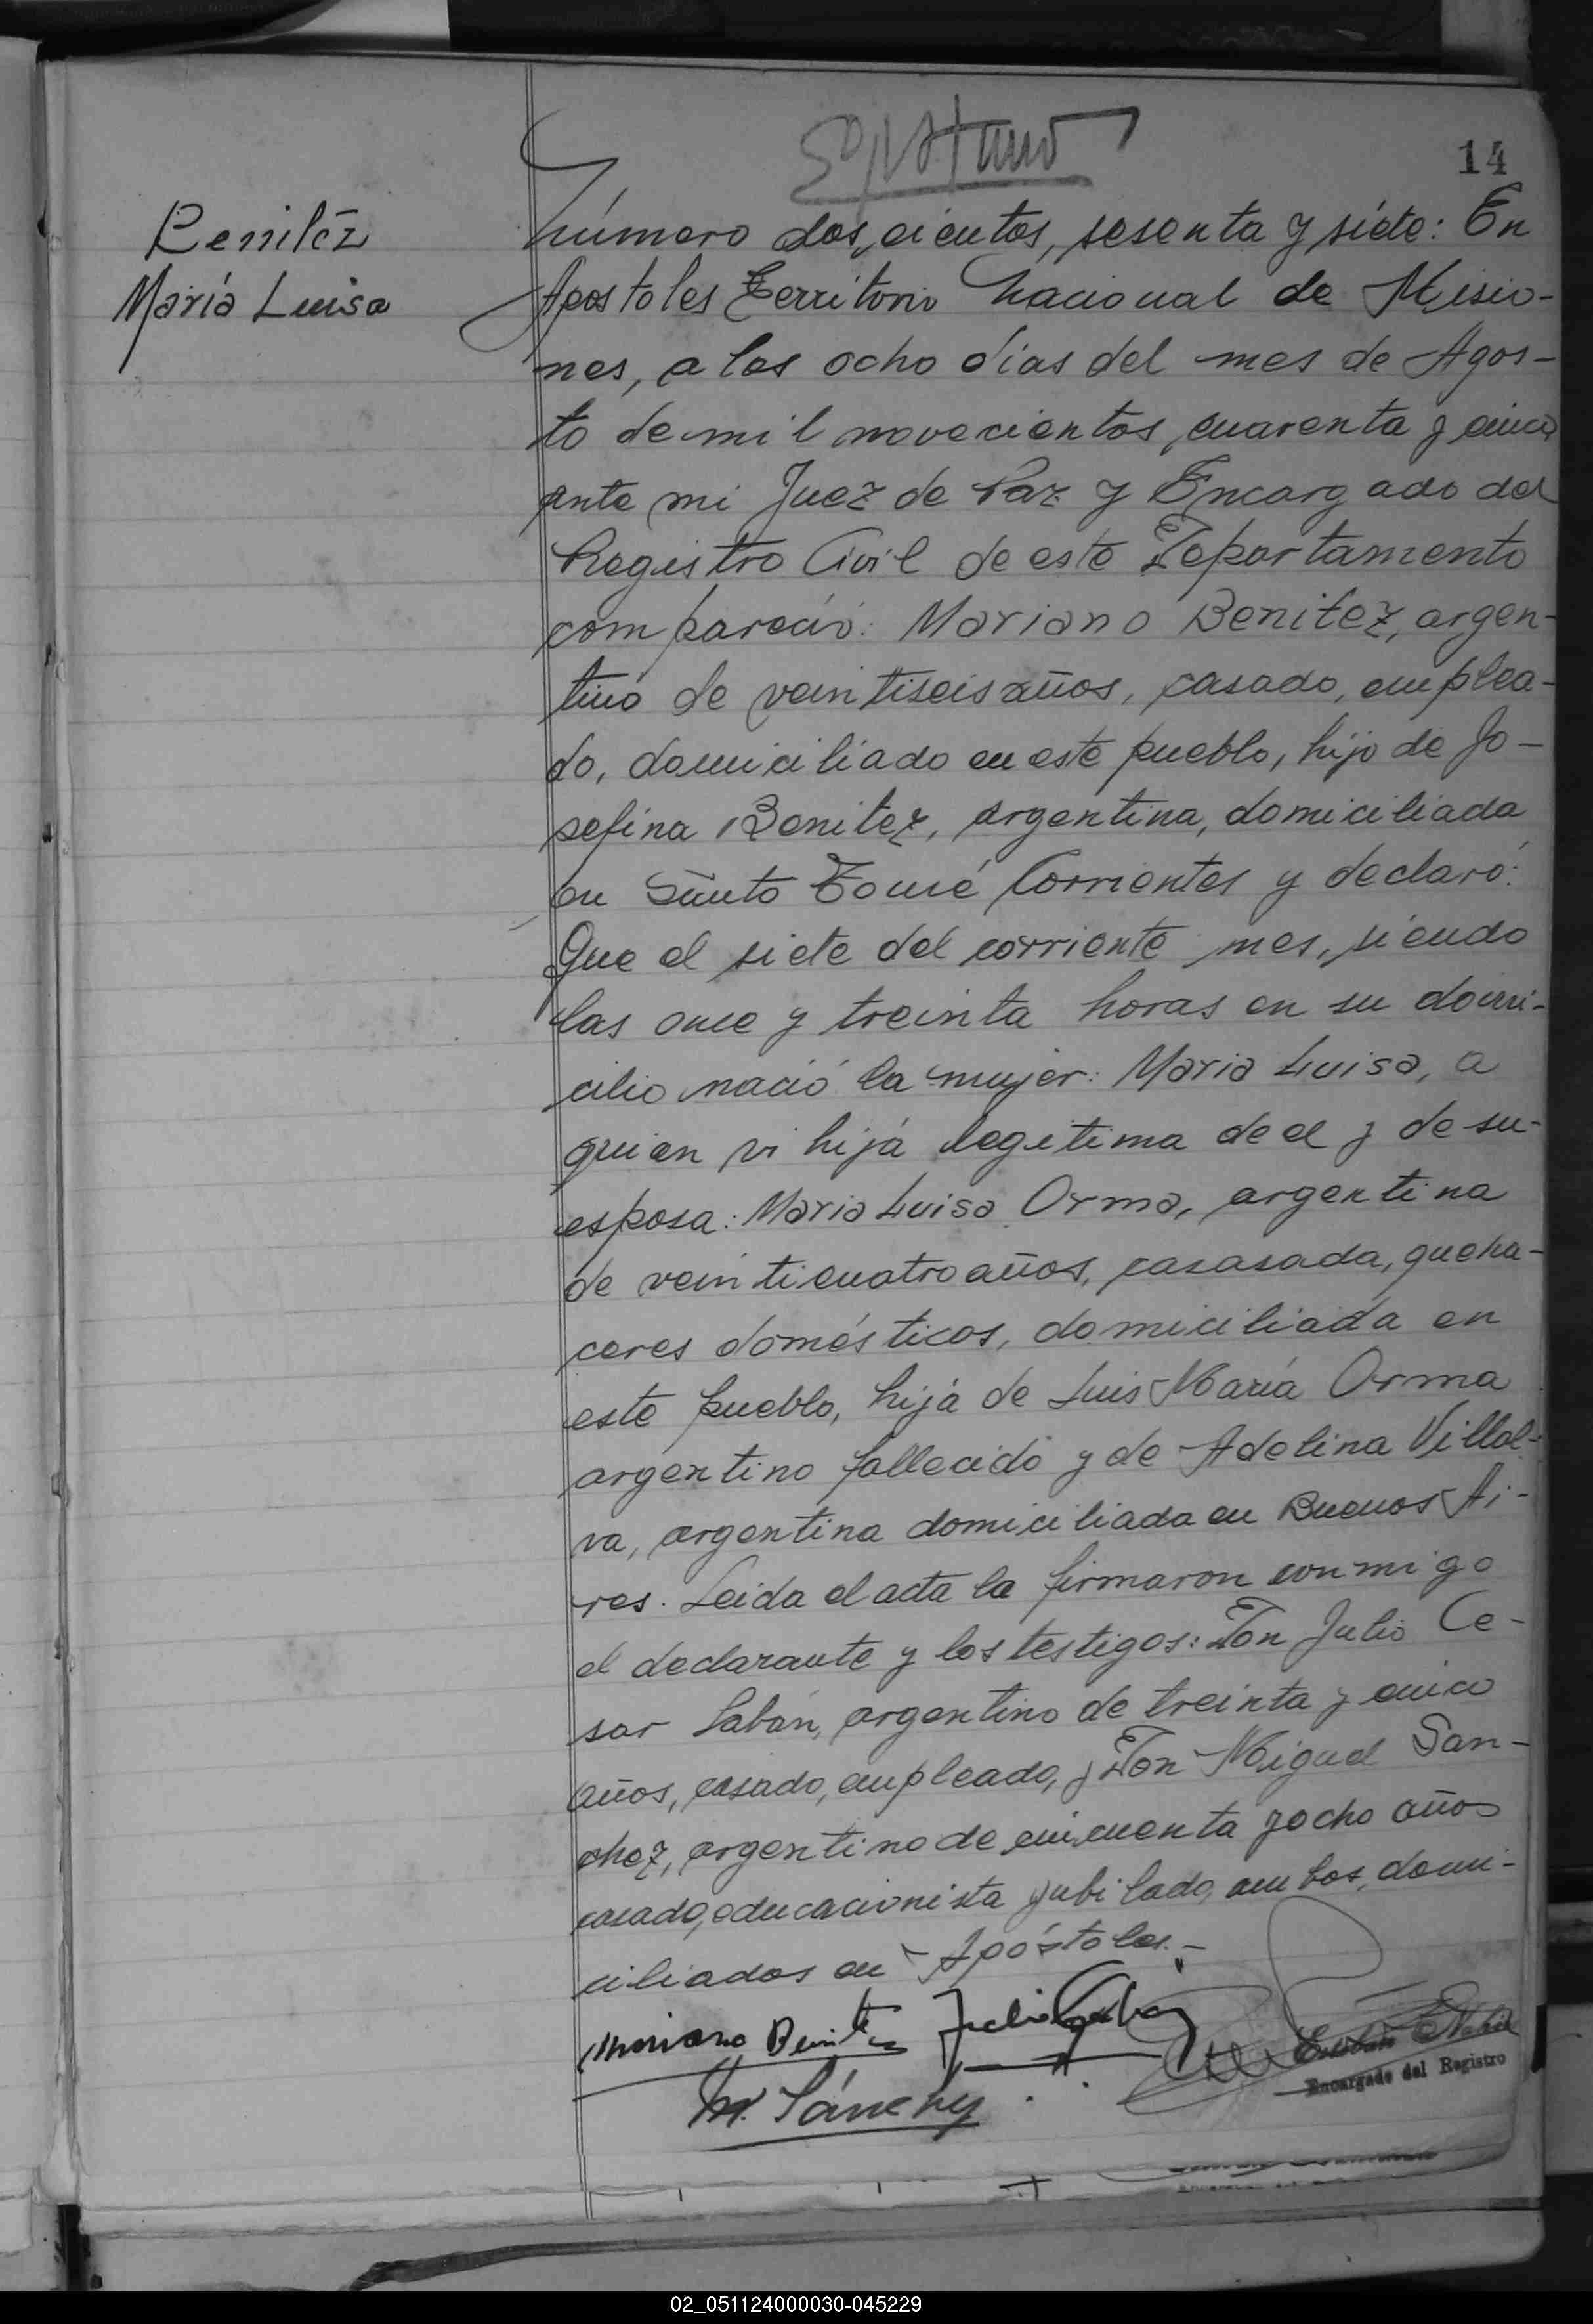 14
Benitez
María Luisa
Número doscientos, sesenta y siete: En
Apostoles Territorio Nacional de Misio-
nes, a los ocho días del mes de Agos-
to de mil novecientos, cuarenta y cinco
ante mi Juez de Paz y Encargado del
Registro Civil de este Departamento
compareció: Mariano Benitez, argen-
tino de veintiseis años, casado, emplea-
do, domiciliado en este pueblo, hijo de Jo-
sefina Benitez, argentina, domiciliada
en Santo Tomé Corrientes y declaró:
Que el siete del corriente mes, siendo
las once y treinta horas en su domi-
cilio nació la mujer: Maria Luisa, a
quien vi hija legitima de el y de su-
esposa: Maria Luisa Orma, argentina
de veinticuatro años, casasada, queha-
ceres domésticos, domiciliada en
este pueblo, hija de Luis María Orma
argentino fallecido y de Adelina Villal-
va, argentina domiciliada en Buenos Ai-
res. Leida el acta la firmaron conmigo
el declarante y los testigos: Don Julio Ce-
sar Labán, argentino de treinta y cinco
años, casado, empleado, y Don Miguel San-
chez, argentino de cincuenta y ocho años
casado, educacionista jubilado, ambos, domi-
ciliados en Apóstoles.-
Mariano Benitez
M. Sánchez
Esteban
Encargado del Registro
02_051124000030-045229